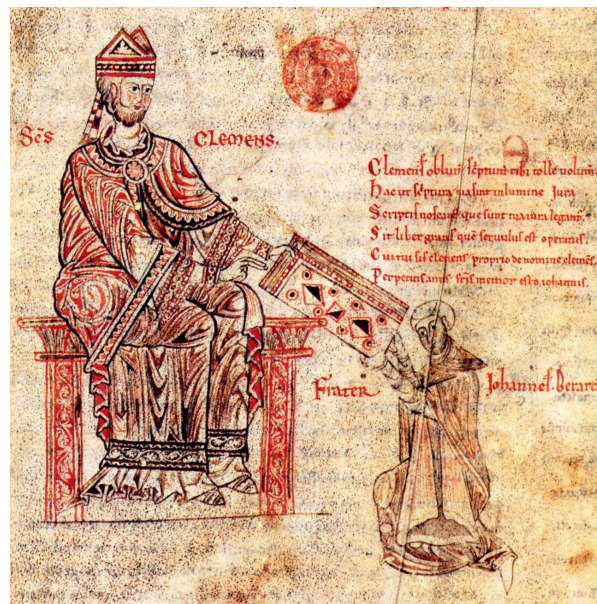 Sc̄s CLemens.
Clemens oblatū sc̄ptum tibi tolle uolum̄
hac ut sc̄ptura sint in lumine Jura
Scriptis que sunt tua iura legant.
Sit liber gratus quē seruulus est operatus.
Cui tu sis clemens proprio de nomine clemēs.
Perpetuis annis fr̄is memor esto iohannis.
Frater Johannes Berard